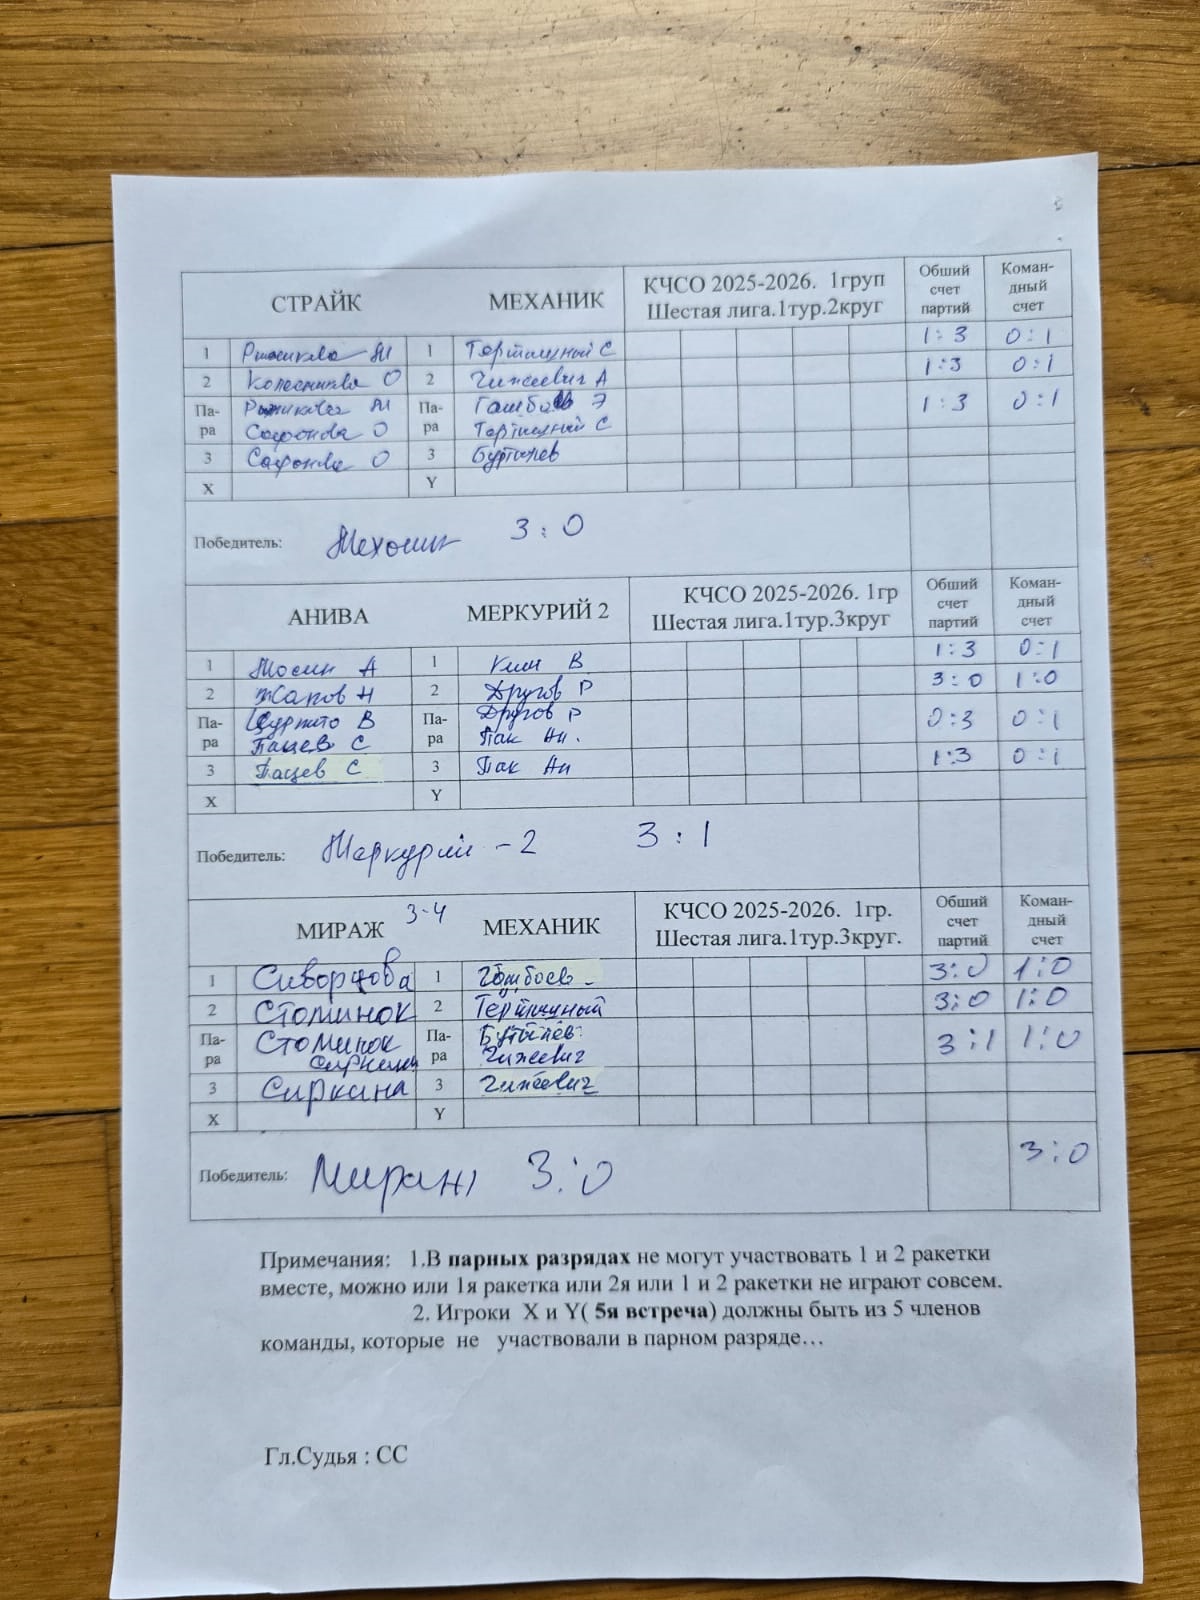 СТРАЙК МЕХАНИК КЧСО 2025-2026. 1груп Обший Коман-
Шестая лига.1тур.2круг счет дный
партий счет
1 М 1 Тертишный С 1:3 0:1
2 Колесникова О 2 Чижевич А 1:3 0:1
Па- М Па- Гашбоев Э 1:3 0:1
ра Сафонова О ра Тертишный С
3 Сафонова О 3
X Y
Победитель: Механик 3:0
АНИВА МЕРКУРИЙ 2 КЧСО 2025-2026. 1гр Обший Коман-
Шестая лига.1тур.3круг счет дный
партий счет
1 Мосин А 1 Ким В 1:3 0:1
2 Жапов Н 2 Другов Р 3:0 1:0
Па- В Па- Другов Р 0:3 0:1
ра Пацев С ра Пак Ан.
3 Пацев С 3 Пак Ан 1:3 0:1
X Y
Победитель: Меркурий-2 3:1
МИРАЖ 3-4 МЕХАНИК КЧСО 2025-2026. 1гр. Обший Коман-
Шестая лига.1тур.3круг. счет дный
партий счет
1 Скворцова 1 3:0 1:0
2 Стоминок 2 Тертишный 3:0 1:0
Па- Стоминок Па- 3:1 1:0
ра Сиркина ра Чижевич
3 Сиркина 3 Чижевич
X Y
Победитель: Мираж 3:0 3:0
Примечания: 1.В парных разрядах не могут участвовать 1 и 2 ракетки
вместе, можно или 1я ракетка или 2я или 1 и 2 ракетки не играют совсем.
2. Игроки X и Y( 5я встреча) должны быть из 5 членов
команды, которые не участвовали в парном разряде…
Гл.Судья : СС